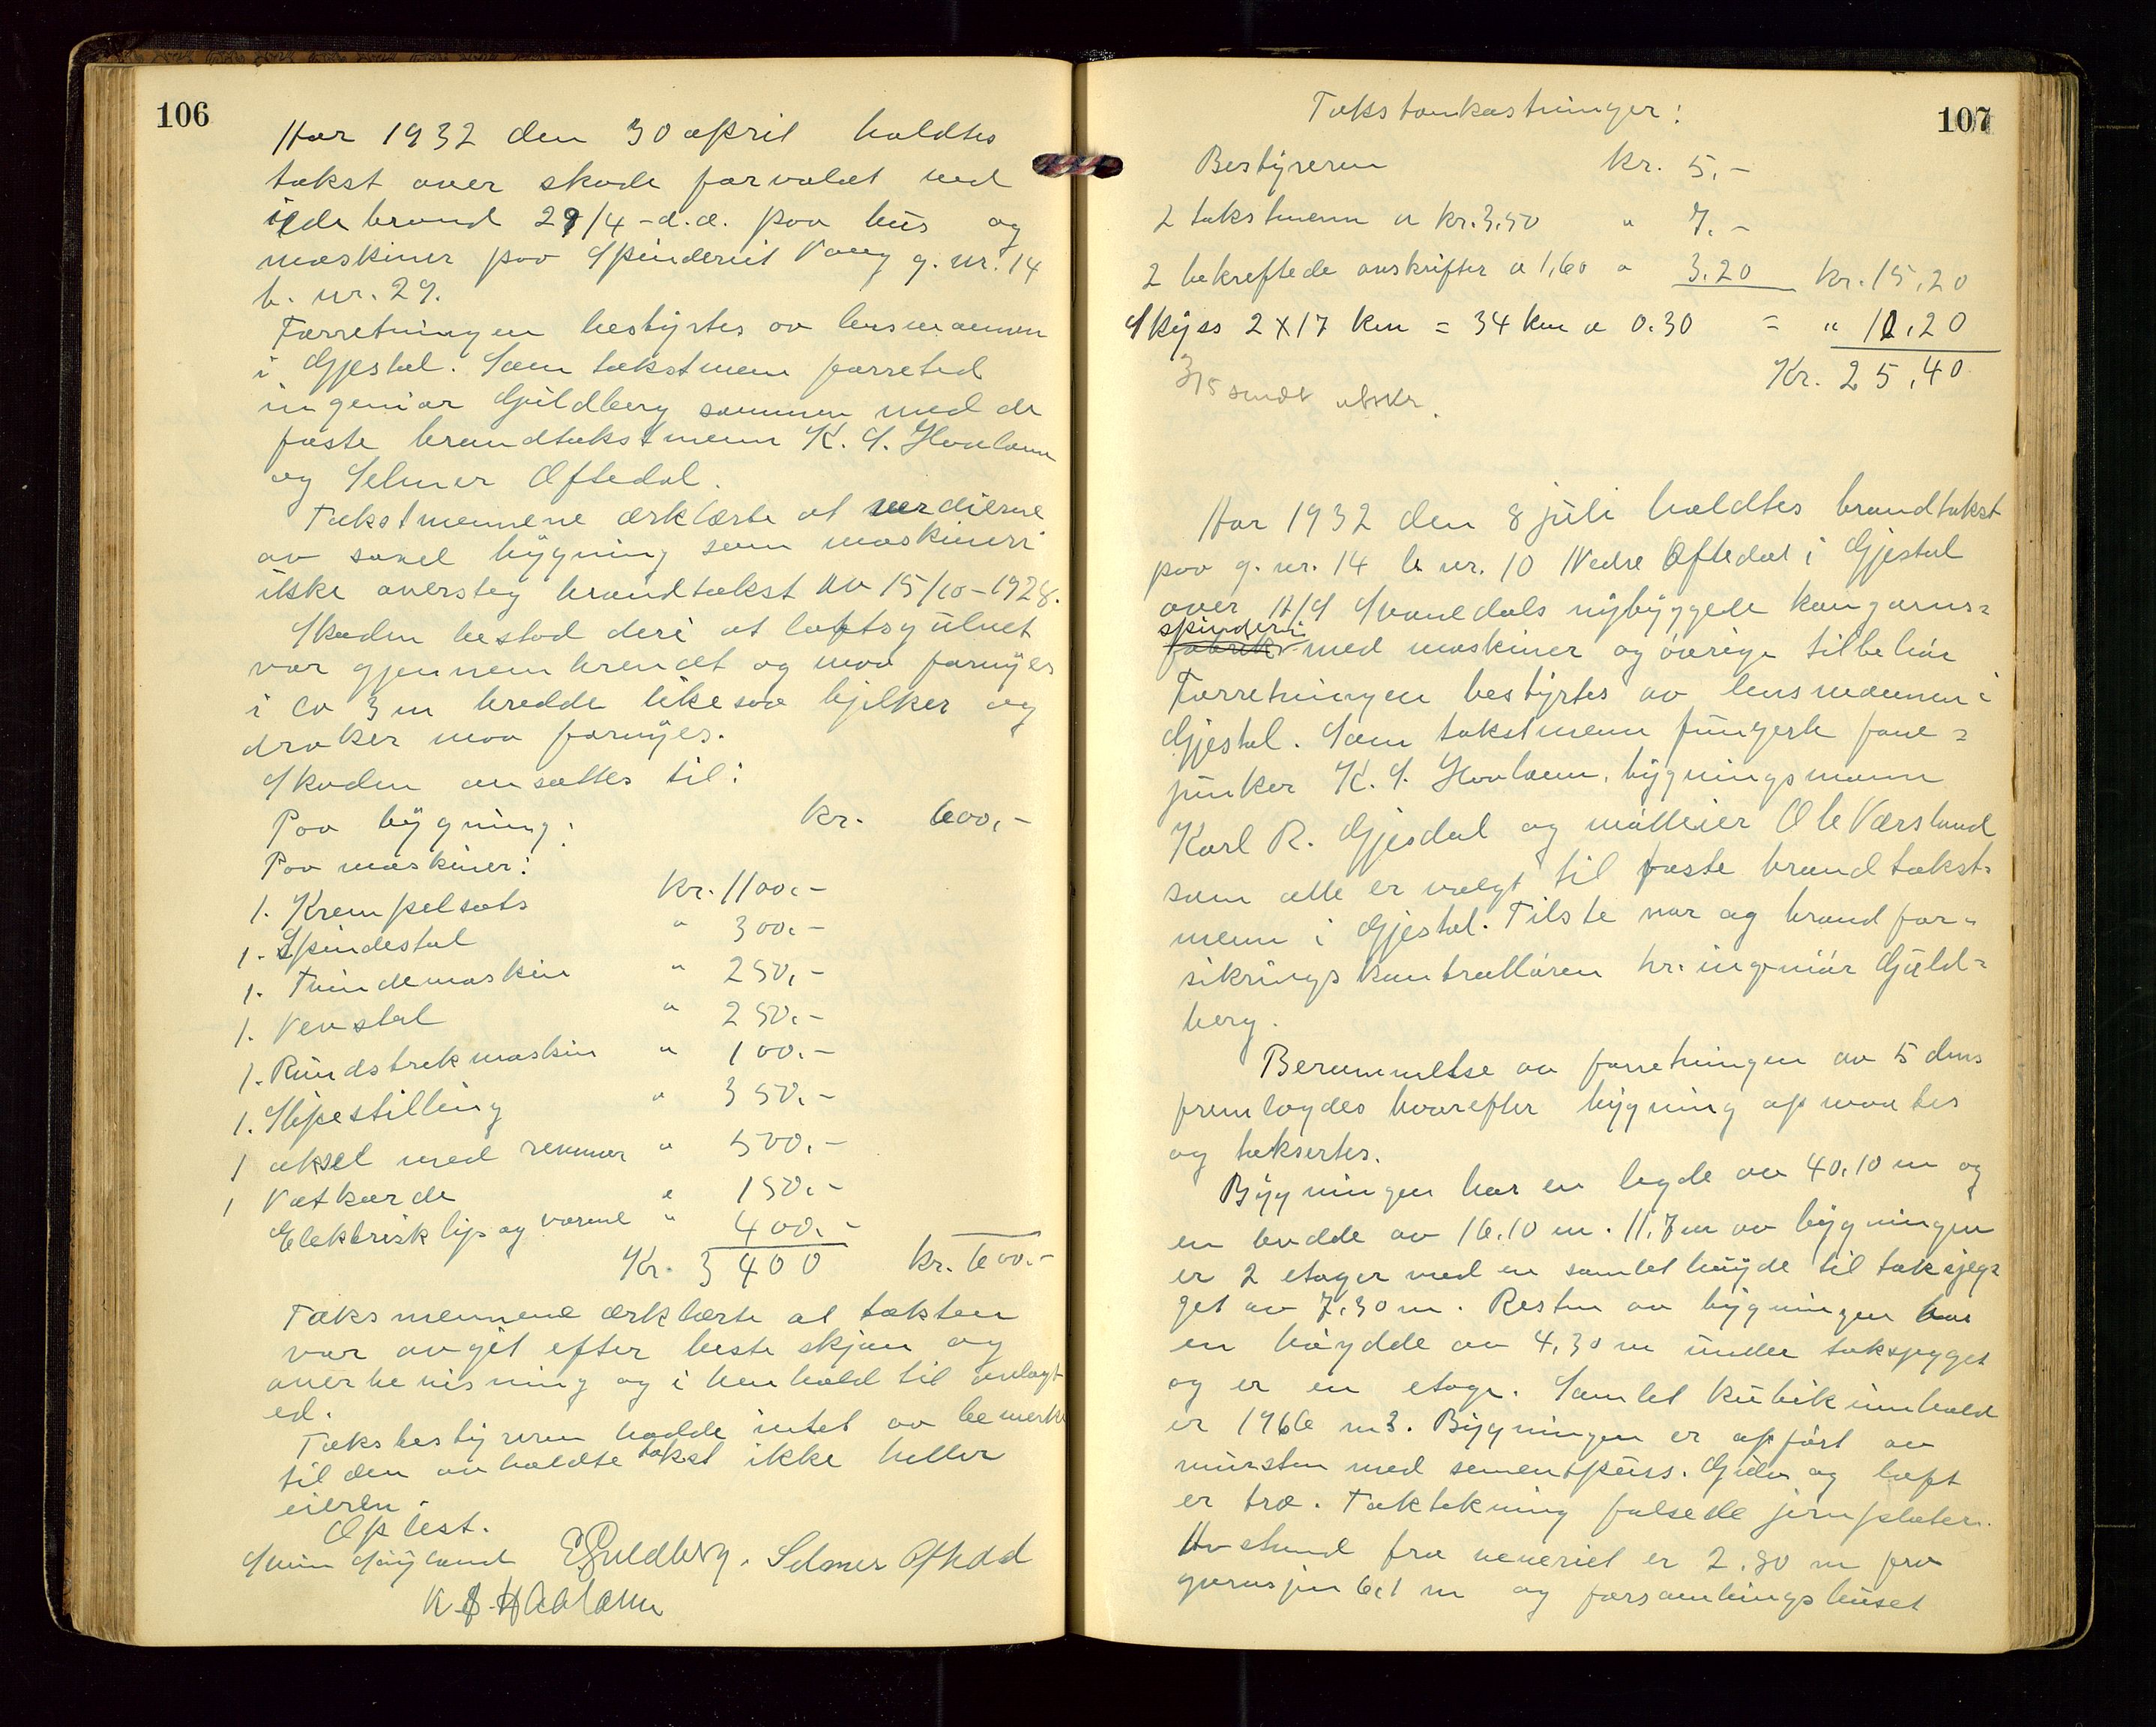 106
Aar 1932 den 30 april holdtes
takst over skade forvoldt ved
ildebrand 29/4 - d.a. paa hus og
maskiner paa Spinderiet Vaag g. nr. 14
b. nr. 29.
Forretningen bestyrtes av lensmannen
i Gjestal. Som takstmenn forretted
ingeniør Guldberg sammen med de
faste brandtakstmenn K. S. Haaland
og Selmer Oftedal.
Takstmennene erklærte at verdierne
av savel bygning som maskineri
ikke oversteg brandtakst av 15/10 - 1928.
Skaden bestod deri at loftsgulvet
var gjennembrendt og maa fornyes
i ca 3 m bredde likesaa bjelker og
draker maa fornyes.
Skaden ansattes til:
Paa bygning: kr. 600,-
Paa maskiner:
1. Krempelsats kr. 1100.-
1. Spindestol " 300.-
1. Tvindemaskin " 250,-
1. Vevstol " 250.-
1. Rundstrekmaskin " 100.-
1. Slipestilling " 350.-
1 aksel med remmer " 500.-
1 Vatkarde " 150.-
Elektrisk lys og varme " 400.-
Kr. 3400 kr. 600.-
Taksmennene erklærte at takten
var avgit efter beste skjøn og
overbevisning og i henhold til avlagt
ed.
Takstbestyreren hadde intet av bemerke
til den avholdte takst ikke heller
eieren.
Oplest.
Svein Søyland E Guldberg. Selmer Oftedal
K. S. Haaland
107
Takstomkostninger:
Bestyreren kr. 5.-
2 takstmenn a kr. 3.50 " 7.-
2 bekreftede avskrifter a 1,60 " 3.20 kr. 15,20
Skyss 2 x 17 km = 34 km a 0.30 = " 10,20
Kr. 25,40
3/5 sendt utskr.
Aar 1932 den 8 juli holdtes brandtakst
paa g. nr. 14 b nr. 10 Nedre Oftedal i Gjestal
over A/S Svaneldals nybyggede kamgarns=
spinderi
fabrik med maskiner og øvrige tilbehør
Forretningen bestyrtes av lensmannen i
Gjestal. Som takstmenn fungerte fane=
junker K. S. Haaland, bygningsmann
Karl R. Gjesdal og mølleier Ole Værsland
som alle er valgt til faste brandtakst=
menn i Gjestal. Tilste var og brandfor=
sikringskontrolløren hr. ingeniør Guld=
berg.
Berammelse av forretningen av 5 dms
fremlagdes hvorefter bygning opmaaltes
og taksertes.
Bygningen har en legde av 40.10 m og
en bredde av 16.10 m. 11.7 m av bygningen
er 2 etager med en samlet høyde til takskjeg=
get av 7.30 m. Resten av bygningen har
en høydde av 4.30 m under takskjegget
og er en etage. Samlet kubikinnhold
er 1966 m3. Bygningen er opført av
mursten med sementpuss. Gulv og loft
er træ. Taktekning falsede jernplater.
Avstand fra veveriet er 2.80 m fra
6.1 m og forsamlingshuset